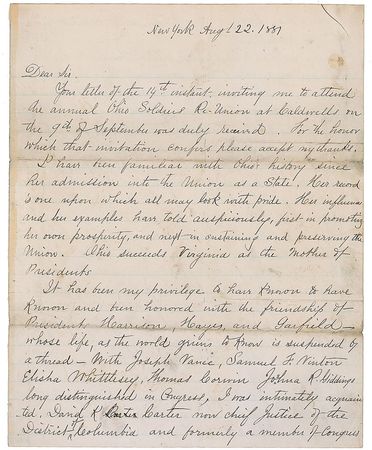 New York Augt 22. 1881
Dear Sir.
Your letter of the 14th instant, inviting me to attend
the annual Ohio Soldiers Re-Union at Caldwells on
the 9th of September was duly received. For the honor
which that invitation confers please accept my thanks.
I have been familiar with Ohio's history since
her admission into the Union as a State. Her record
is one upon which all may look with pride. Her influence
and her examples have told auspiciously, first in promoting
her own prosperity, and next in sustaining and preserving the
Union. Ohio succeeds Virginia as the Mother of
Presidents
It has been my privilege to have known to have
known and been honored with the friendship of
Presidents Harrison, Hayes, and Garfield—
whose life, as the world grieves to know is suspended by
a thread— With Joseph Vance, Samuel F. Vinton
Elisha Whittlesey, Thomas Corwin Joshua R. Giddings
long distinguished in Congress, I was intimately acquain
ted. David K Carter now chief Justice of the
District of Columbia and formerly a member of Congress